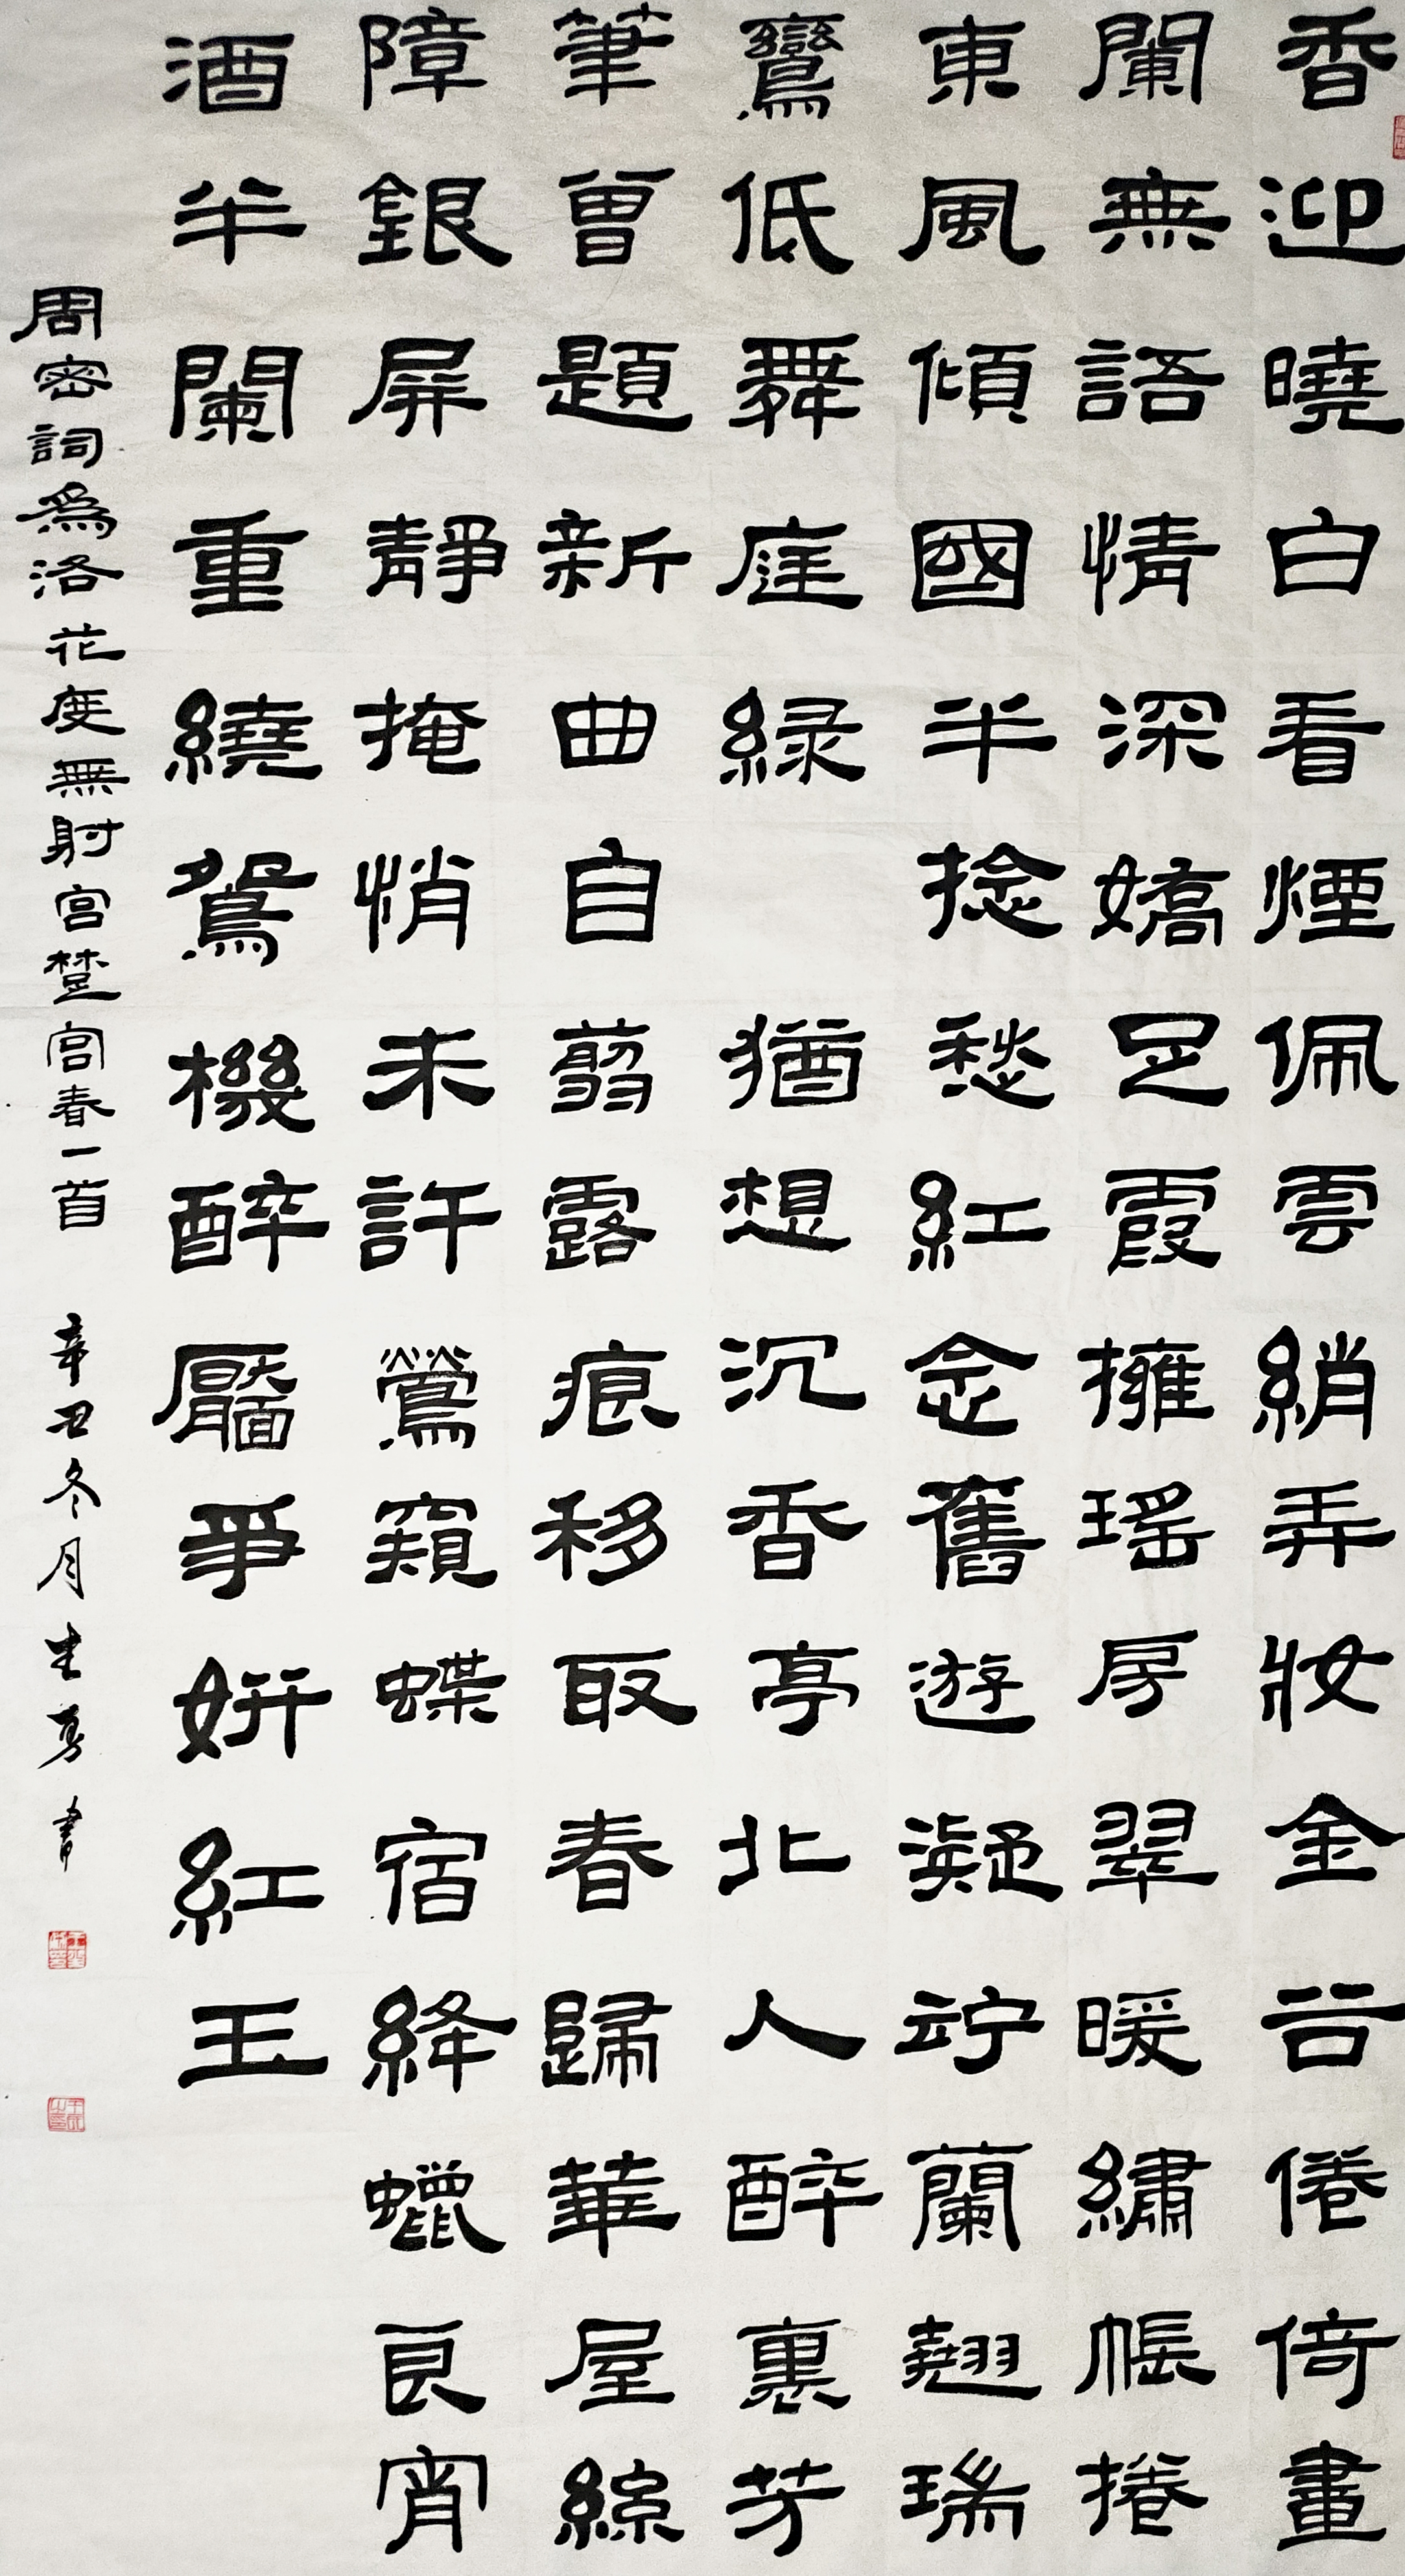 香迎曉白看煙佩雲綃弄妝金谷倦倚畫
闌無語情深嬌足霞擁瑤房翠暖繡帳捲
東風傾國半捻愁紅念舊遊凝竚蘭翹瑞
鸞低舞庭綠 猶想沉香亭北人醉裏芳
筆曾題新曲自翦露痕移取春歸華屋絲
障銀屏靜掩悄未許鶯窺蝶宿絳蠟良宵
酒半闌重繞鴛機醉靨爭妍紅玉
周密詞為洛花度無射宮楚宮春一首 辛丑冬月生勇書